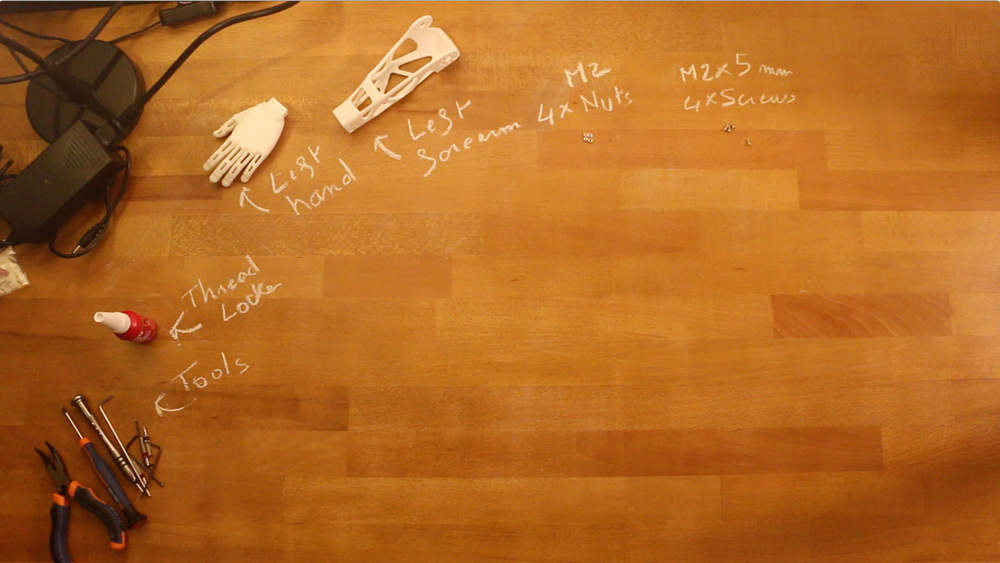 Left
hand
Left
Forearm
M2
4×Nuts
M2×5 mm
4×Screws
Thread
Locker
Tools